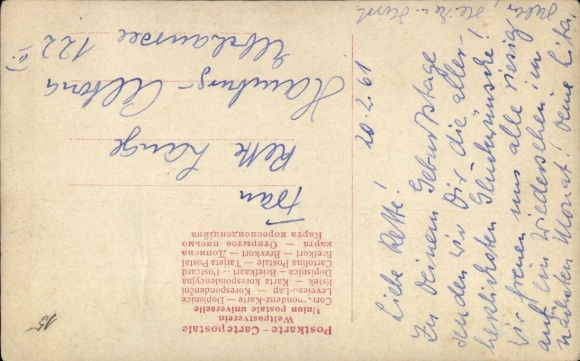 Postkarte – Carte postale
Weltpostverein
Union postale universelle
Karte – Dopisnice
Levelező-Lap – Korespondenční
lístek – Karta korespondencyjna
Dopisnica – Briefkaart – Postcard
Cartolina Postale – Tarjeta Postal
Brefkort – Brevkort – Дописна
карта – Открытое письмо
Карта кореспонденційна
Frau
Kette Lange
Hamburg-Altona
Elbchaussee 122
20.2.61
Liebe Kette!
Zu Deinem Geburtstage
senden wir Dir die aller-
herzlichsten Glückwünsche!
Wir freuen uns alle riesig
auf ein Wiedersehen im
nächsten Monat! Deine Lita,
Heike u. Horst
15